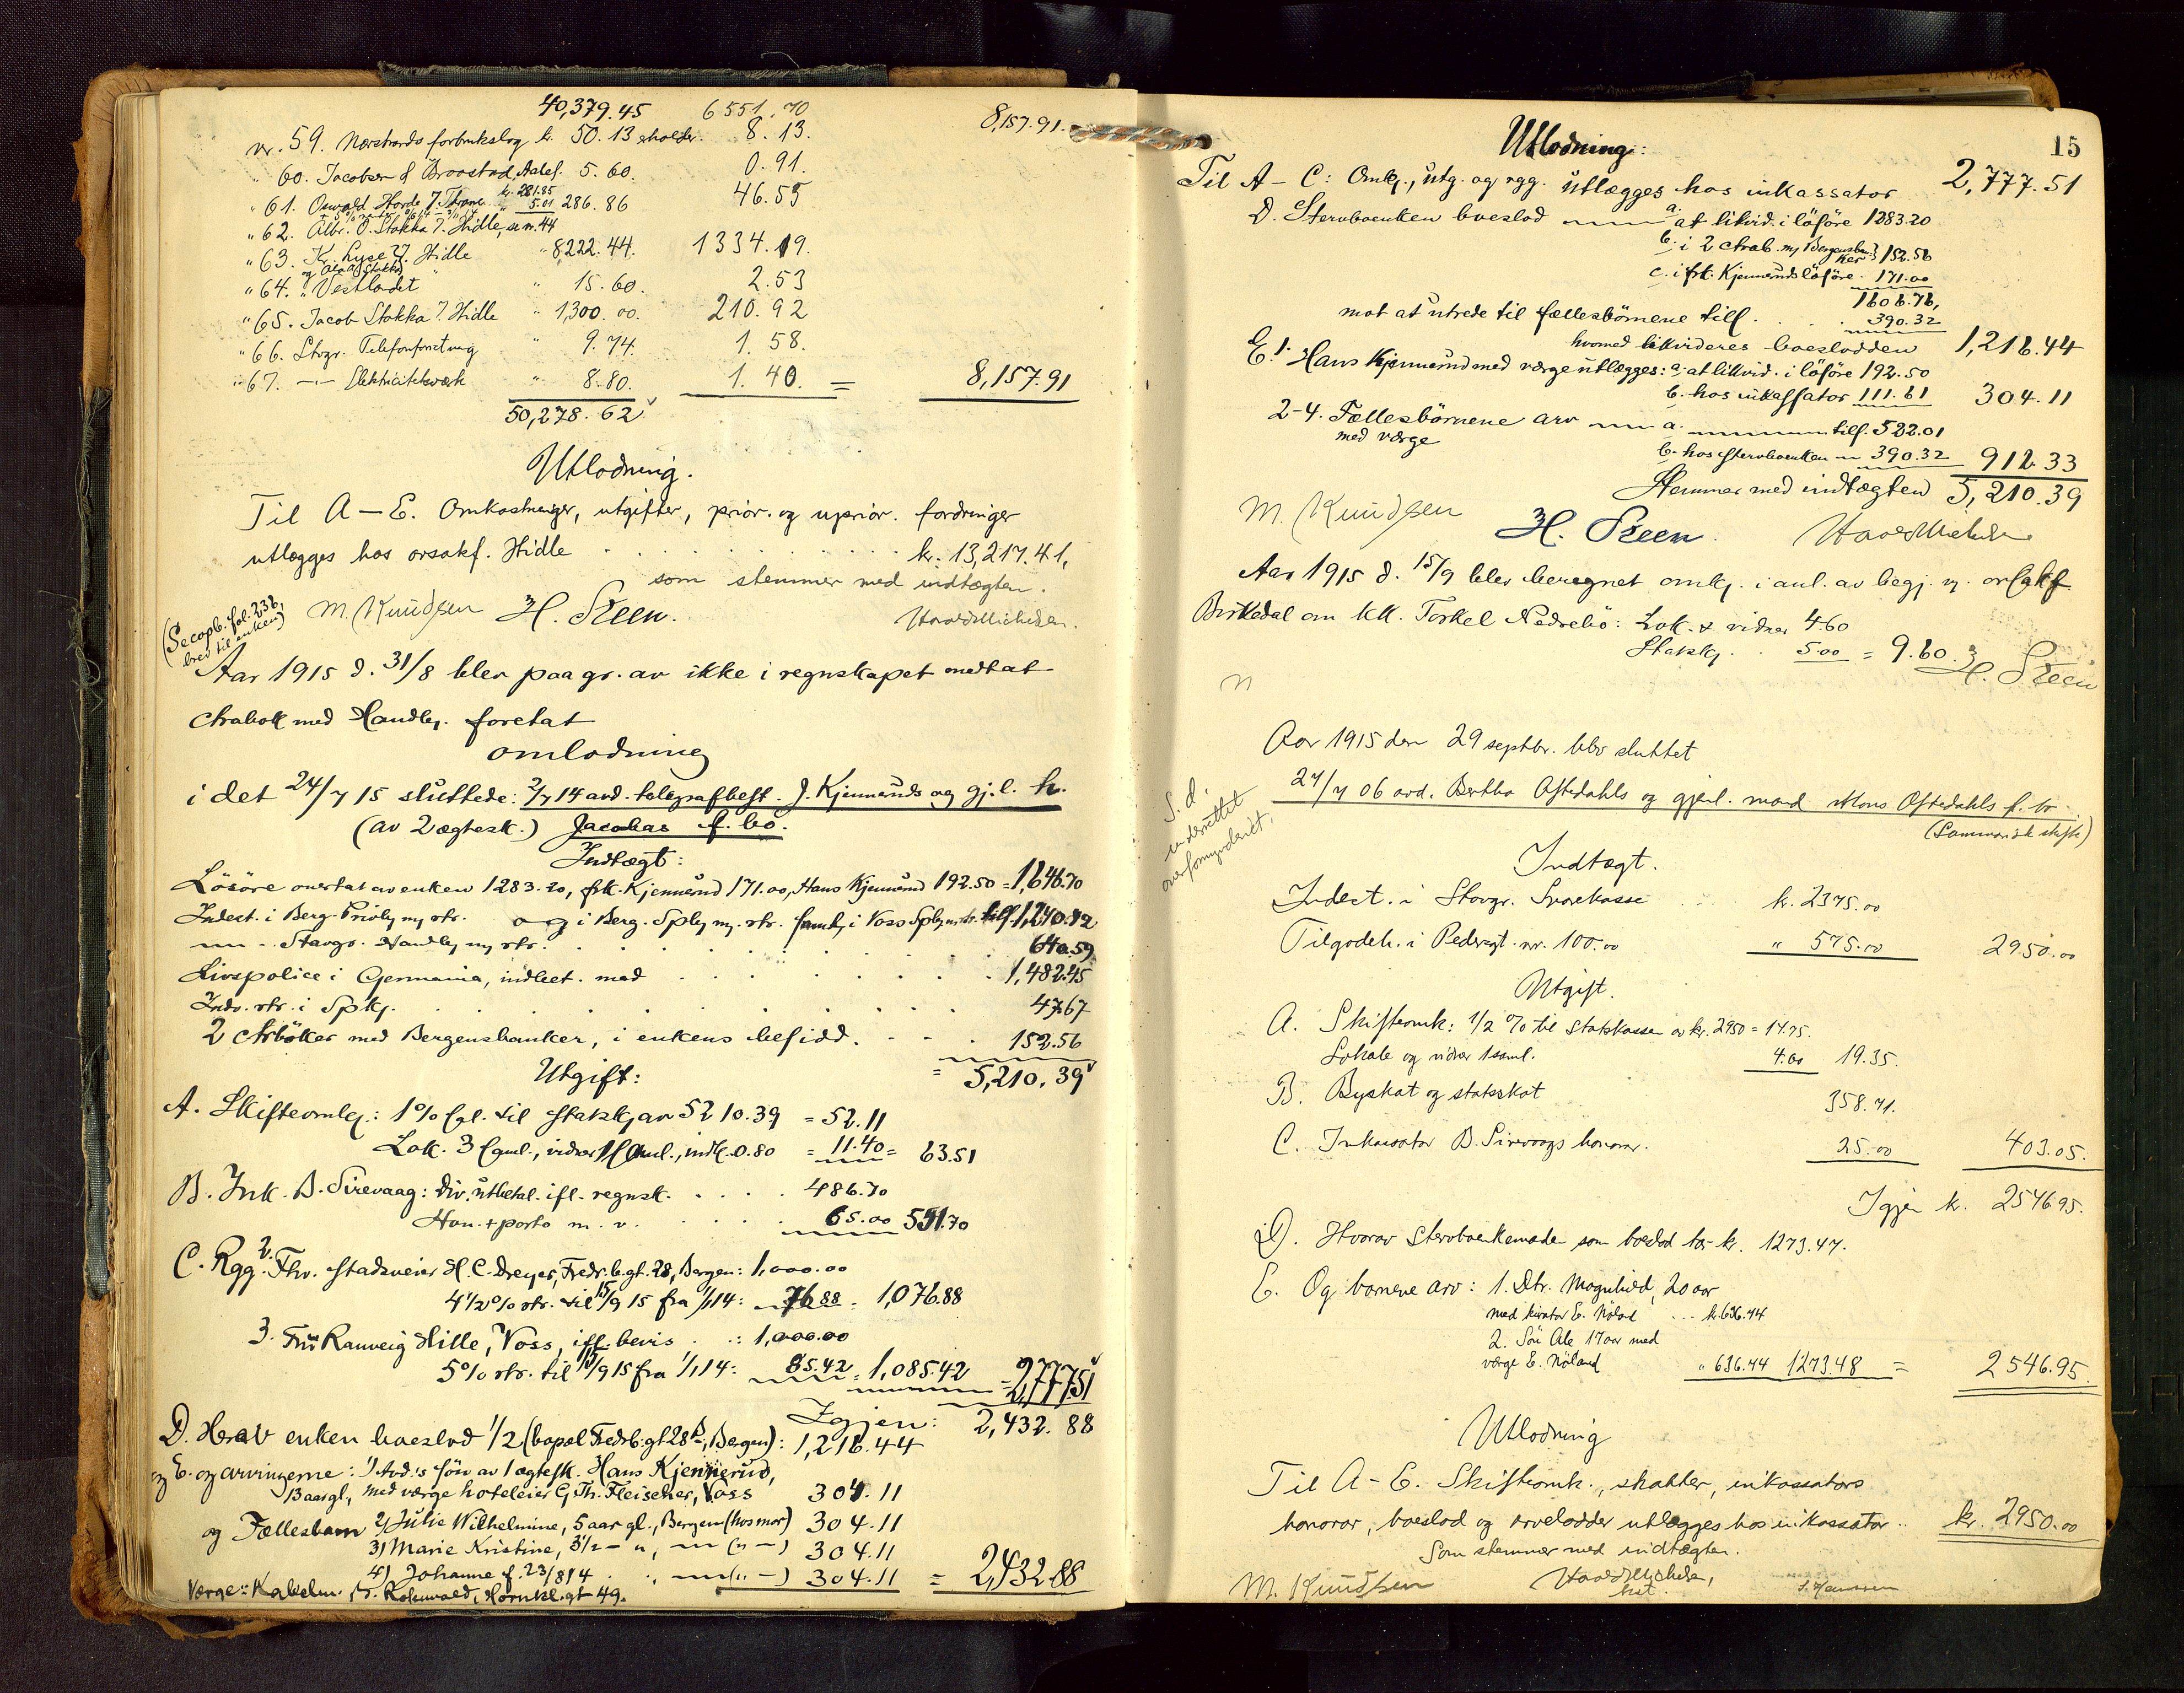 40,379.45 6551.70 8,157.91.
nr. 59. Norstrands forbrukslag k. 50.13 erholder. 8.13.
" 60. Jacobsen & Braastad, Aalef. 5.60. 0.91.
" 61. Oswald Horde 7. Thrane kr. 281.85 5.01 286.86 46.55
" 62. Albr. O. Stokka 7. Hidle, se nr. 44
" 63. Kr. Lyse 7. Hidle " 8222.44. 1334.19.
" 64. " Vestlandet " 15.60. 2.53
" 65. Jacob Stokka 7. Hidle " 1,300.00. 210.92
" 66. Stvgr. Telefonforretning " 9.74. 1.58.
" 67. —"— Elektricitetsværk " 8.80. 1.40. = 8,157.91
50,278.62
Utlodning.
Til A — E. Omkostninger, utgifter, prior. og uprior. fordringer
utlægges hos orsakf. Hidle kr. 13,217.41,
som stemmer med indtægten.
M. Knudsen H. Steen.
(Se copb. fol. 232, brev til enken)
Aar 1915 d. 31/8 blev paa gr. av ikke i regnskapet medtat
ctrabok med Handlg. foretat
omlodning
i det 24/7 15 sluttede: 7/7 14 avd. telegrafbest. J. Kjennerüds og gjl. h.
(av 2 ægtesk.) Jacobas f. bo.
Indtægt:
Lösöre overtat av enken 1283.20, frk. Kjennerüd 171.00, Hans Kjennerüd 192.50 = 1,646.70
Indest. i Berg. Privbg m/ rtr. og i Berg. Spbg m. rtr. samt i Voss Spbg m. rtr. tils. 1,240.42
—"— - Stavgr. Handbg m/ rtr. 640.59
Livspolice i Germania, indbet. med 1,482.45
Indv. rtr. i Spkg. 47.67
2 ctrböker med Bergensbanker, i enkens besidd. 152.56
= 5,210.39
Utgift:
A. Skifteomkg.: 1% bl. til Statskg av 5210.39 = 52.11
Lok. 3 saml., vidner 1 saml., indk. 0.80 = 11.40 = 63.51
B. Ink. B. Sirevaag: div. ütbetal. ifl. regnsk. 486.70
Hon. + porto m. v. 65.00 551.70
C. Rgg. 2. Fhv. stadsveier H. C. Dreyer, Fredr. b.gt. 28, Bergen: 1,000.00
4 1/2% rtr. til 15/9 15 fra 1/1 14: 76.88 = 1,076.88
3. Frü Ranveig Hille, Voss, ifl. bevis : 1,000.00
5% rtr. til 15/9 15 fra 1/1 14: 85.42 = 1,085.42 = 2,777.51
Igjen: 2,432.88
D. Herav enken boeslod 1/2 (bopæl Fredr.b.gt 28B, Bergen): 1,216.44
og E. og arvingerne: 1) Avd.'s sön av 1 ægtesk. Hans Kjennerüd,
13 aar gl., med værge hoteleier G. Th. Fleischer, Voss 304.11
og Fællesbarn 2) Julie Wilhelmine, 5 aar gl., Bergen (hos mor) 304.11
3) Marie Kristine, 3 1/2 — ", —"— (" —) 304.11
4) Johanne f. 23/8 14 " —"— (" —) 304.11 = 2,432.88
Værge: Kakelm. J. Rosenvald, Hornkl.gt 49.
15
Utlodning:
Til A — C: Omkg., ütg. og rgg. ütlægges hos inkassator 2,777.51
D. Stervboenken boeslod —"— a. at likvid. i lösöre 1283.20
b. i 2 ctrab. m/ Bergensbanker 152.56
c. i frk. Kjennerüds lösöre 171.00
1606.76,
mot at ütrede til fællesbörnene tills. 390.32
hvormed likvideres boeslodden 1,216.44
E. 1. Hans Kjennerüd med værge ütlægges: a. at likvid. i lösöre 192.50
b. hos inkassator 111.61 304.11
2-4. Fællesbörnene arv —"— a. —"— tils. 522.01
med værge
b. hos stervboenken —"— 390.32 912.33
Stemmer med indtægten 5,210.39
M. Knudsen H. Steen.
Aar 1915 d. 15/9 blev beregnet omkg. i anl. av begj. fr. orsakf.
Birkedal om kk. Torkel Nedrebö: Lok. & vidner 4.60
Statskg. 5.00 = 9.60. H. Steen
n
Aar 1915 den 29 septbr. blev sluttet
27/7 06 avd. Bertha Oftedahls og gjenl. mand Mons Oftedahls f. bo
(Summarisk skifte)
S. d. underrettet overformynderiet.
Indtægt.
Indest. i Stavgr. Sparekasse kr. 2375.00
Tilgodeh. i Pedersgt. nr. 100.00 " 575.00 2950.00
Utgift.
A. Skifteomk: 1/2 % til Statskassen av kr. 2950 = 14.75.
Lokale og vidner 1 saml. 4.60 19.35.
B. Byskat og statsskat 358.71.
C. Inkassator B. Sirevaags honorar. 25.00 403.05.
Igjen kr. 2546.95.
D. Hvorav Stervboenkemanden som boeslod bør kr. 1273.47.
E. Og barnene arv: 1. Dtr. Magnhild, 20 aar
med kurator E. Nöland kr. 636.74
2. Sön Ole 17 aar med
værge E. Nöland " 636.74 1273.48 = 2546.95.
Utlodning
Til A — E. Skifteomk., skatter, inkassators
honorar, boeslod og arvelodder utlægges hos inkassator kr. 2950.00
Som stemmer med indtægten.
M. Knudsen